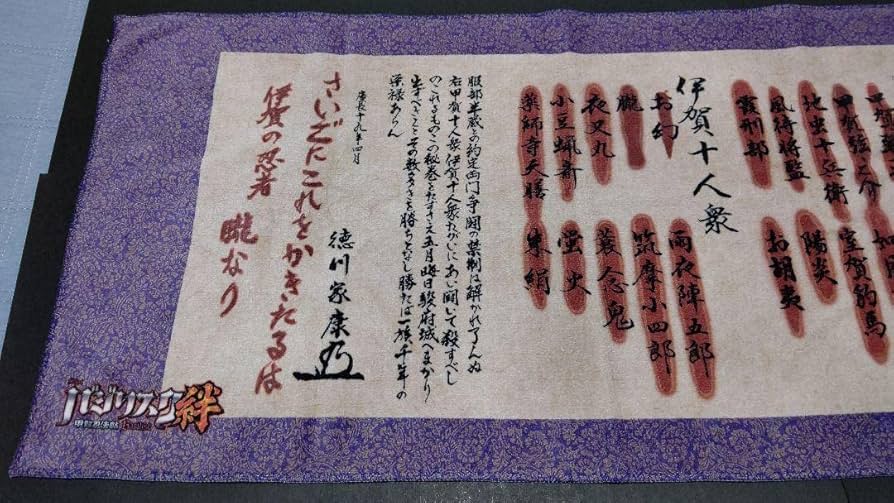 甲賀弦之介
地虫十兵衛
風待将監
霞刑部
室賀豹馬
陽炎
お胡夷
伊賀十人衆
お幻
朧
夜叉丸
小豆蝋斎
薬師寺天膳
雨夜陣五郎
筑摩小四郎
蓑念鬼
蛍火
朱絹
服部半蔵との約定両門争闘の禁制は解かれてんぬ
右甲賀十人衆伊賀十人衆たがいにあい闘いて殺すべし
のこれるものこの秘巻をたずさえ五月晦日駿府城へまかり
出ずべきことその数多きを勝ちとなし勝たば一族千年の
栄禄あらん
慶長十九年四月
徳川家康
さいごにこれをかきたるは
伊賀の忍者 朧なり
バジリスク絆
甲賀忍法帖